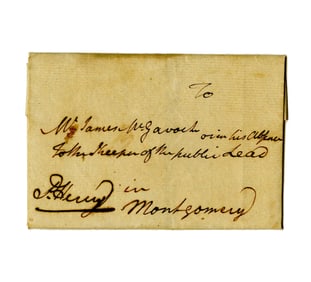 To
Mr James McGavock or in his Absence
to the Keeper of the public Lead
in
P. Henry
Montgomery